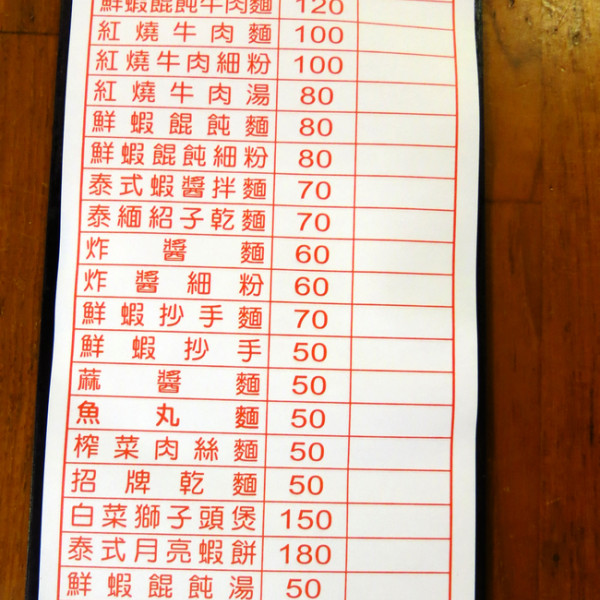 鮮蝦餛飩牛肉麵 120
紅燒牛肉麵 100
紅燒牛肉細粉 100
紅燒牛肉湯 80
鮮蝦餛飩麵 80
鮮蝦餛飩細粉 80
泰式蝦醬拌麵 70
泰緬紹子乾麵 70
炸醬麵 60
炸醬細粉 60
鮮蝦抄手麵 70
鮮蝦抄手 50
蔴醬麵 50
魚丸麵 50
榨菜肉絲麵 50
招牌乾麵 50
白菜獅子頭煲 150
泰式月亮蝦餅 180
鮮蝦餛飩湯 50